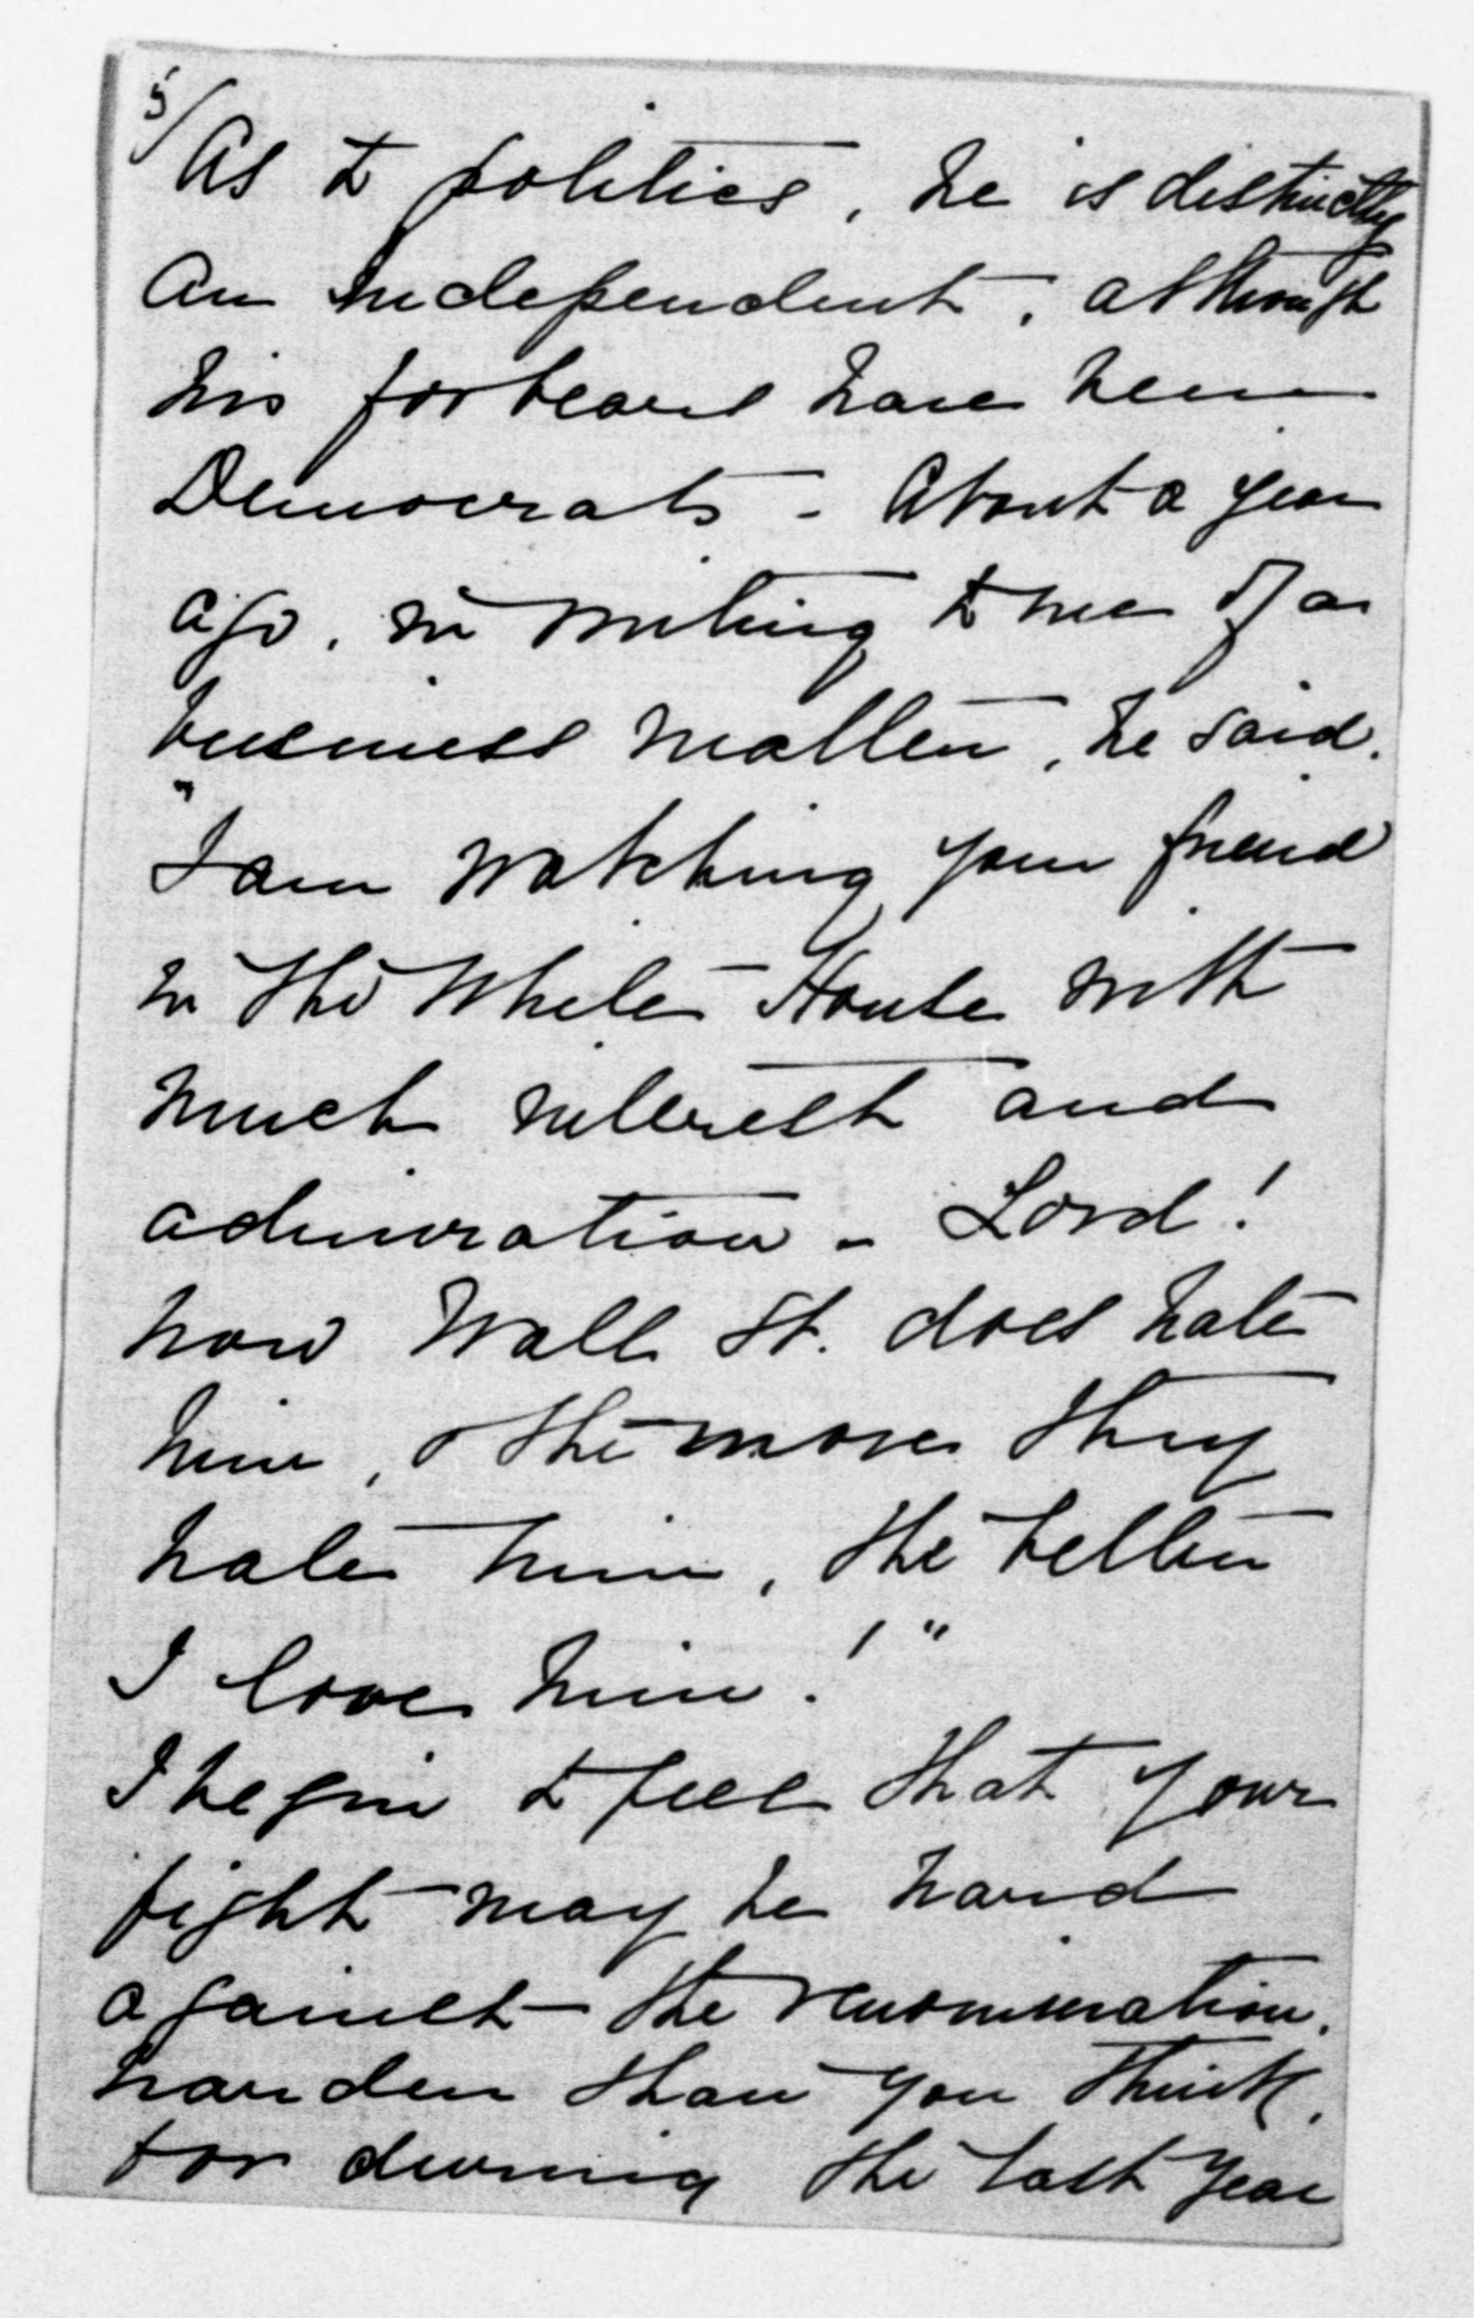 5/
As to politics, he is distinctly
an independent, although
his forbears have been
Democrats - About a year
ago, in writing to me of a
business matter, he said,
"I am watching your friend
in the White House with
much interest and
admiration - Lord!
how Wall St. does hate
him, & the more they
hate him, the better
I love him!"
I begin to feel that your
fight may be hard
against the renomination,
harder than you think,
for during the last year